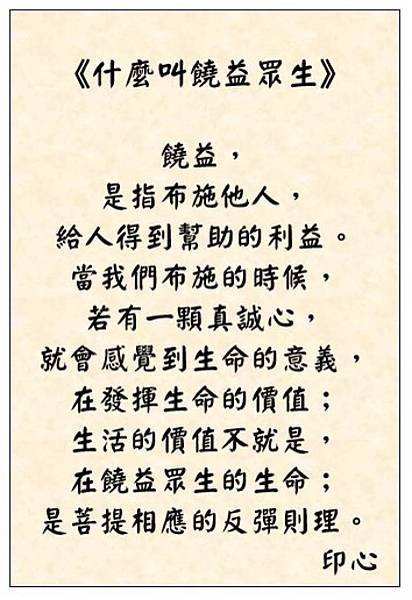 《什麼叫饒益眾生》
饒益，
是指布施他人，
給人得到幫助的利益。
當我們布施的時候，
若有一顆真誠心，
就會感覺到生命的意義，
在發揮生命的價值；
生活的價值不就是，
在饒益眾生的生命；
是菩提相應的反彈則理。
印心